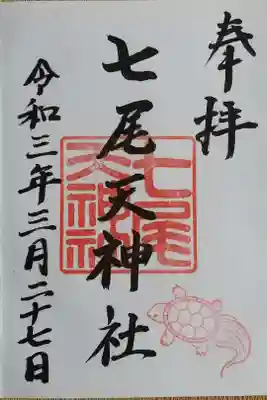 奉拝
七尾天神社
七尾天神社
令和三年三月二十七日